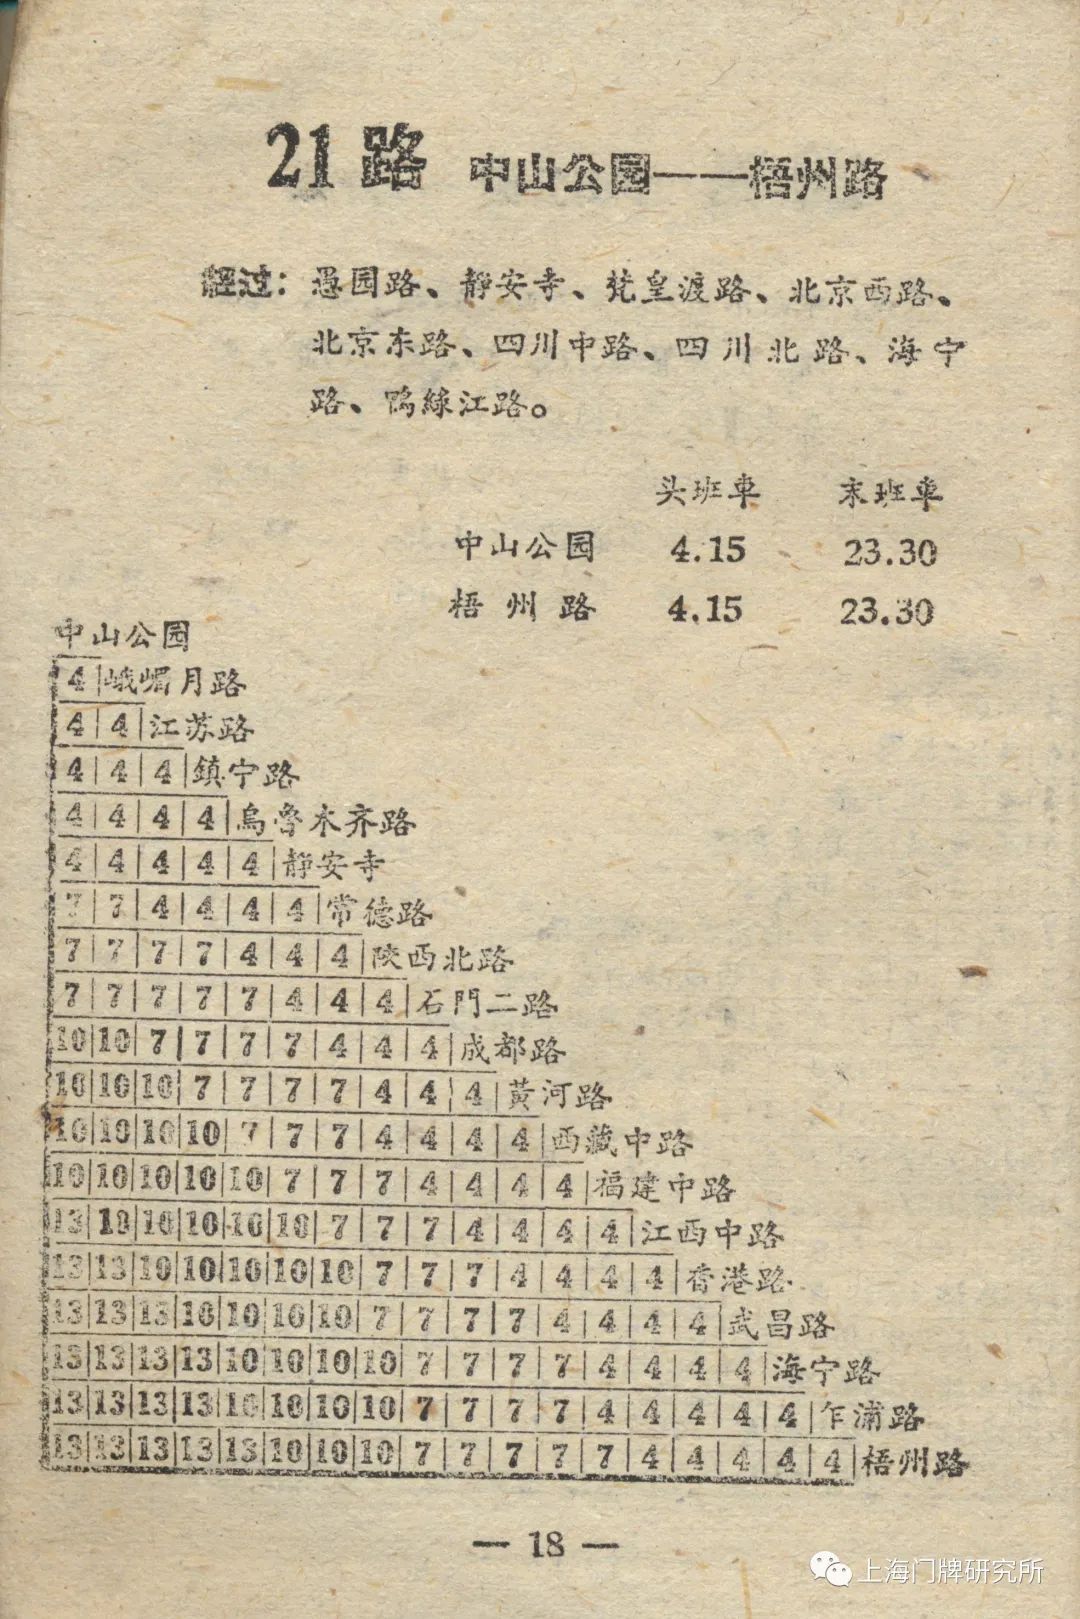 21路 中山公园——梧州路
經过：愚园路、静安寺、梵皇渡路、北京西路、
北京东路、四川中路、四川北路、海宁
路、鴨綠江路。
头班車 末班車
中山公园 4.15 23.30
梧州路 4.15 23.30
中山公园
4 峨嵋月路
4 4 江苏路
4 4 4 鎮宁路
4 4 4 4 烏魯木齐路
4 4 4 4 4 静安寺
7 7 4 4 4 4 常德路
7 7 7 7 4 4 4 陝西北路
7 7 7 7 7 4 4 4 石門二路
10 10 7 7 7 7 4 4 4 成都路
10 10 10 7 7 7 7 4 4 4 黃河路
10 10 10 10 7 7 7 4 4 4 4 西藏中路
10 10 10 10 10 7 7 7 4 4 4 4 福建中路
13 10 10 10 10 10 7 7 7 4 4 4 4 江西中路
13 13 10 10 10 10 10 7 7 7 4 4 4 4 香港路
13 13 13 10 10 10 10 7 7 7 7 4 4 4 4 武昌路
13 13 13 13 10 10 10 10 7 7 7 7 4 4 4 4 海宁路
13 13 13 13 10 10 10 10 7 7 7 7 4 4 4 4 4 乍浦路
13 13 13 13 13 10 10 10 7 7 7 7 7 4 4 4 4 4 梧州路
— 18 —
上海门牌研究所